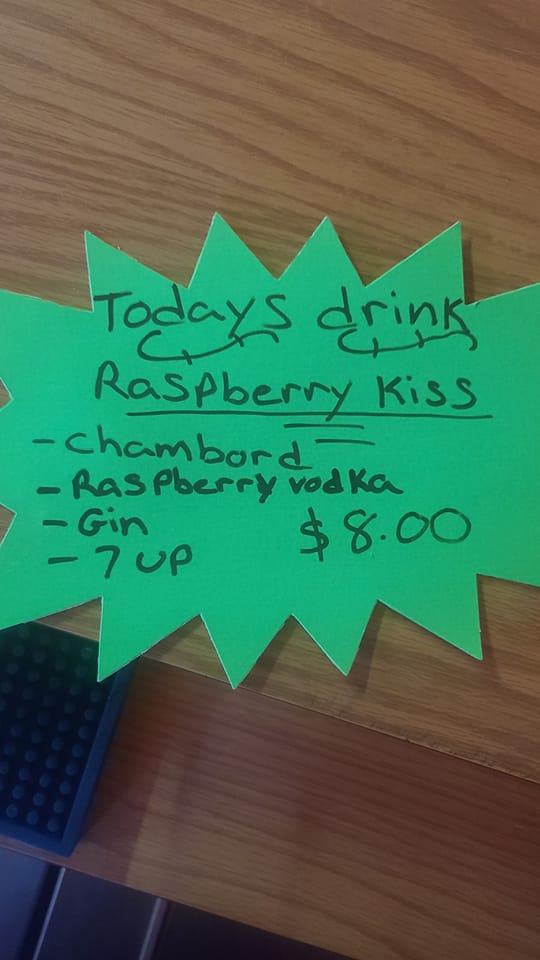 Todays drink
Raspberry Kiss
- Chambord
- Raspberry vodka
- Gin
$8.00
- 7 UP